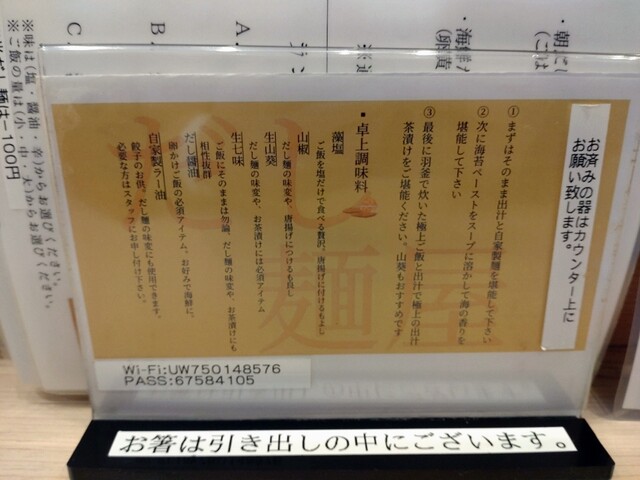 お済みの器はカウンター上に
お願い致します。
①まずはそのまま出汁と自家製麺を堪能して下さい
②次に海苔ペーストをスープに溶かして海の香りを
堪能して下さい
③最後に羽釜で炊いた極上ご飯と出汁で極上の出汁
茶漬けをご堪能ください。山葵もおすすめです
・卓上調味料
藻塩
ご飯を塩だけで食べる贅沢。唐揚げに付けるもよし
山椒
だし麺の味変や、唐揚げにつけるも良し
生山葵
だし麺の味変や、お茶漬けには必須アイテム
生七味
ご飯にそのままは勿論。だし麺の味変や、お茶漬けにも
相性抜群
だし醤油
卵かけご飯の必須アイテム。お好みで海鮮に。
自家製ラー油
餃子のお供。だし麺の味変にも使用できます。
必要な方はスタッフにお申し付け下さい。
だし
麺屋
Wi-Fi:UW750148576
PASS:67584105
お箸は引き出しの中にございます。
・朝だし
(ごは
・海鮮
A.
B.
C.
※味は(塩・醤油・辛からお選びください。
※ご飯の量は(小・中・大からお選びください。
100円